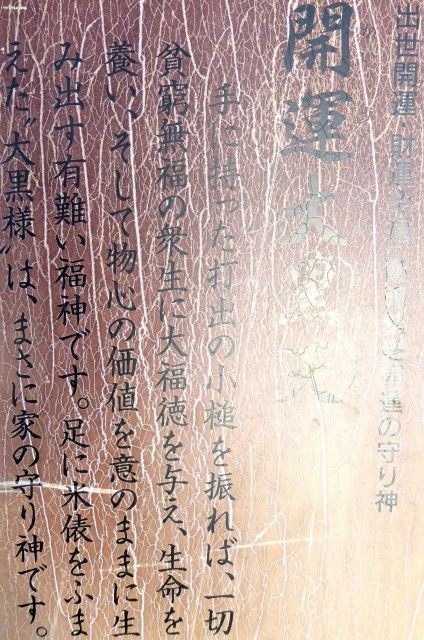 出世開運 財運 の守り神
開運大黒天
手に持った打出の小槌を振れば、一切
貧窮無福の衆生に大福徳を与え、生命を
養い、そして物心の価値を意のままに生
み出す有難い福神です。足に米俵をふま
えた“大黒様”は、まさに家の守り神です。